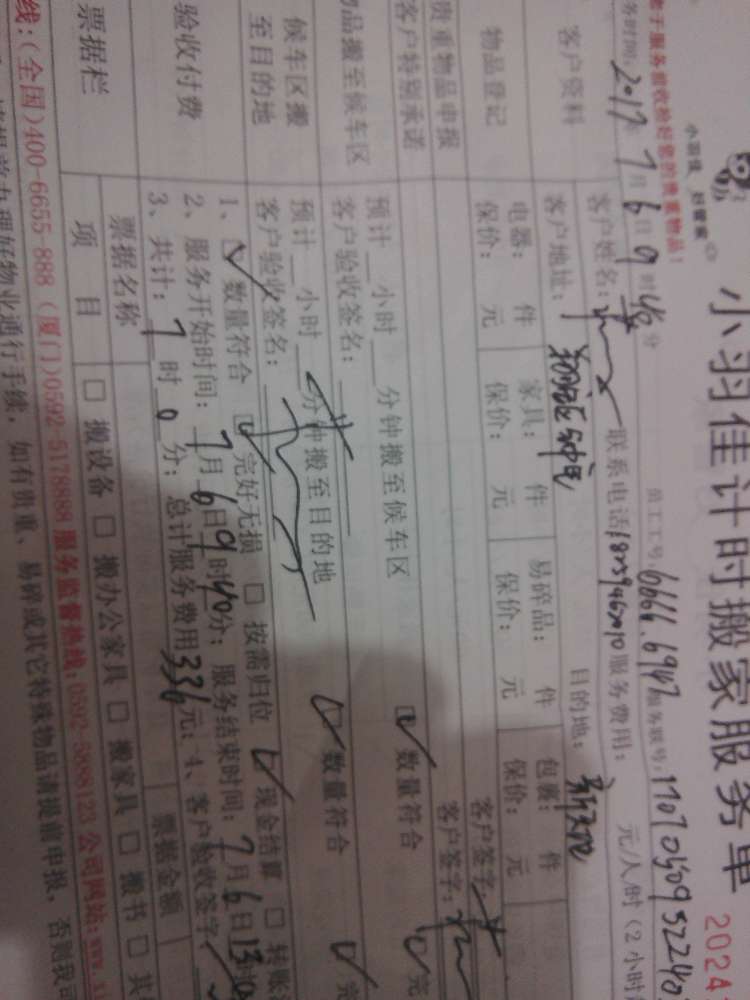 小羽佳 好管家
小羽佳计时搬家服务单
2024
于服务前收检好您的贵重物品!
务时间:2017年7月6日9时40分
员工工号:6666.6947
服务联号:17070509 52240
客户资料
客户姓名:
联系电话
服务费用: 元/人时(2小时
客户地址:
目的地:
物品登记
电器: 件
家具: 件
易碎品: 件
包裹: 件
保价: 元
保价: 元
保价: 元
保价: 元
贵重物品申报
客户签字:
客户特别承诺
客户签字:
物品搬至候车区
预计 小时 分钟搬至候车区
数量符合
完
客户验收签名:
候车区搬
至目的地
预计 小时 分钟搬至目的地
数量符合
完
客户验收签名:
验收付费
1、数量符合 完好无损 按需归位 现金结算 转账
2、服务开始时间:7月6日9时40分; 服务结束时间:7月6日13
3、共计:7时0分; 总计服务费用336元; 4、客户验收签字:
票据栏
票据名称
票据金额
项目
搬设备 搬办公家具 搬家具 搬书 其
线:(全国)400-6655-888 (厦门)0592-5178888 服务监督热线:0592-5888123 公司网站:www.xi
请提前办理好物业通行手续, 如有贵重、易碎或其它特殊物品请提前申报, 否则我司